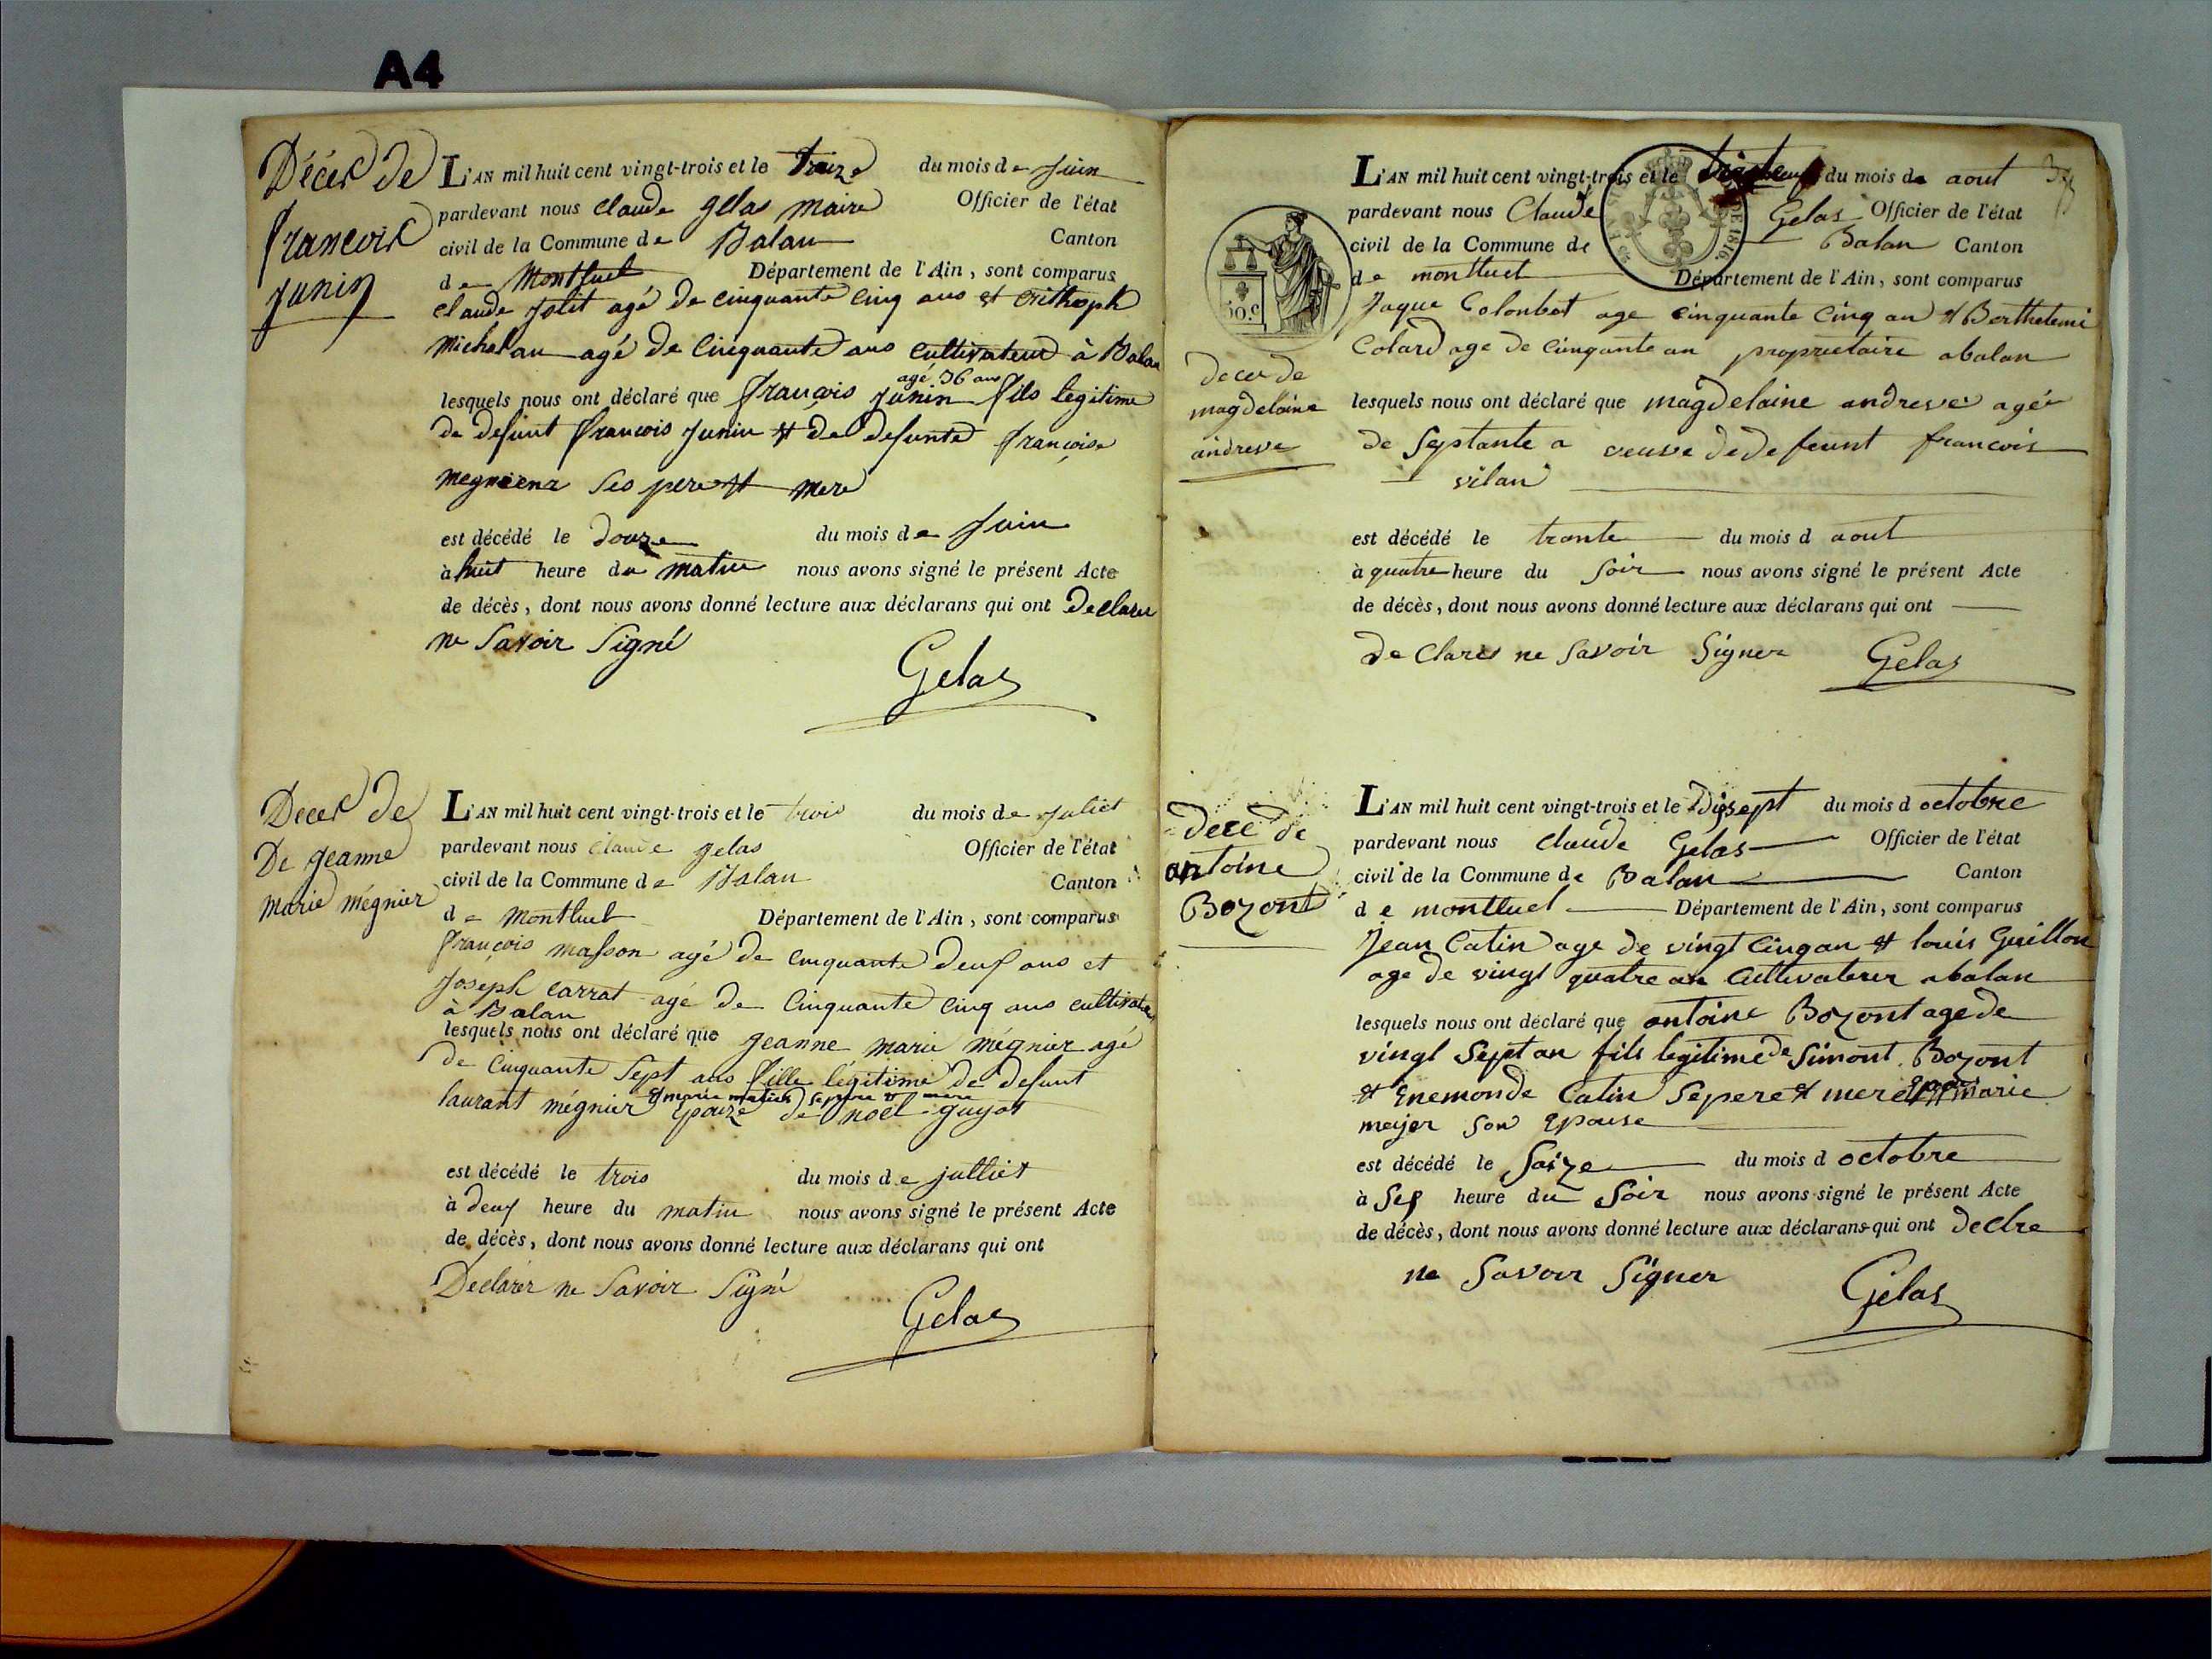 A4
Décès de
francois
junin
L'AN mil huit cent vingt-trois et le treize du mois de juin
pardevant nous claude gelas maire Officier de l'état
civil de la Commune de Balan Canton
de Montluel Département de l'Ain, sont comparus
claude jolit agé de cinquante cinq ans et cristhoph
michel au agé de cinquante ans cultivateur à Balan
agé 36 ans
lesquels nous ont déclaré que françois junin fils legitime
de defunt françois junin et de defunte françoise
ses pere et mere
est décédé le douze du mois de juin
à huit heure du matin nous avons signé le présent Acte
de décès, dont nous avons donné lecture aux déclarans qui ont declarer
ne savoir signé
Gelas
Deces de
De jeanne
marie mégnier
L'AN mil huit cent vingt-trois et le trois du mois de juliet
pardevant nous claude gelas Officier de l'état
civil de la Commune de Balan Canton
de Montluel Département de l'Ain, sont comparus
françois masson agé de cinquante deux ans et
joseph carrat agé de cinquante cinq ans cultivateur
à Balan
lesquels nous ont déclaré que jeanne marie mégnier agé
de cinquante sept ans fille légitime de defunt
et marie se pere et mere
laurant mégnier epouze de noel guyot
est décédé le trois du mois de julliet
à deux heure du matin nous avons signé le présent Acte
de décès, dont nous avons donné lecture aux déclarans qui ont
Declarer ne savoir signé
Gelas
10.c
DE 1816
deces de
magdelaine
andreve
L'AN mil huit cent vingt-trois et le du mois de aout
pardevant nous Claude Gelas Officier de l'état
civil de la Commune de Balan Canton
de montluel Département de l'Ain, sont comparus
Jaque Colonbet age cinquante cinq an et Berthelemi
Colard age de cinquante an proprietaire abalan
lesquels nous ont déclaré que magdelaine andreve agée
de septante a veuve de defeunt francois
vilan
est décédé le trante du mois d aout
à quatre heure du soir nous avons signé le présent Acte
de décès, dont nous avons donné lecture aux déclarans qui ont
de Clares ne savoir signer Gelas
dece de
antoine
Bozont
L'AN mil huit cent vingt-trois et le disept du mois d octobre
pardevant nous claude Gelas Officier de l'état
civil de la Commune de Balan Canton
de montluel Département de l'Ain, sont comparus
jean Catin age de vingt cinq an et louis Guillon
age de vingt quatre an Cultivaterer abalan
lesquels nous ont déclaré que antoine Bozont age de
vingt sept an fils legitime de simont Bozont
et Enemonde Catin se pere et mere marie
meyer son epouse
est décédé le saize du mois d octobre
à sep heure du soir nous avons signé le présent Acte
de décès, dont nous avons donné lecture aux déclarans qui ont declre
ne savoir signer
Gelas